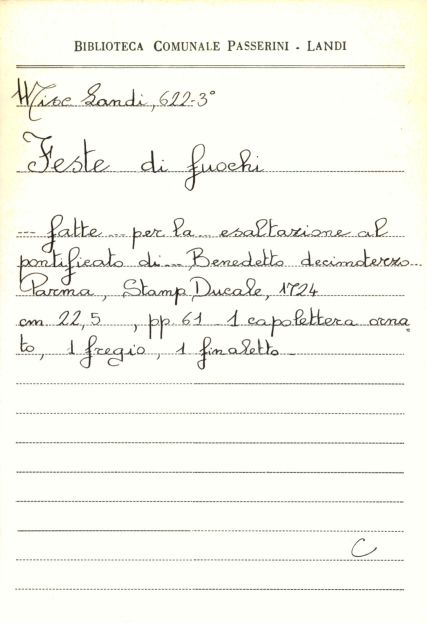 BIBLIOTECA COMUNALE PASSERINI - LANDI
Misc Landi, 622-3°
Feste di fuochi
--- fatte --- per la --- esaltazione al
pontificato di --- Benedetto decimoterzo ---
Parma, Stamp. Ducale, 1724
cm 22,5 , pp. 61 - 1 capolettera orna
to, 1 fregio, 1 finaletto -
C